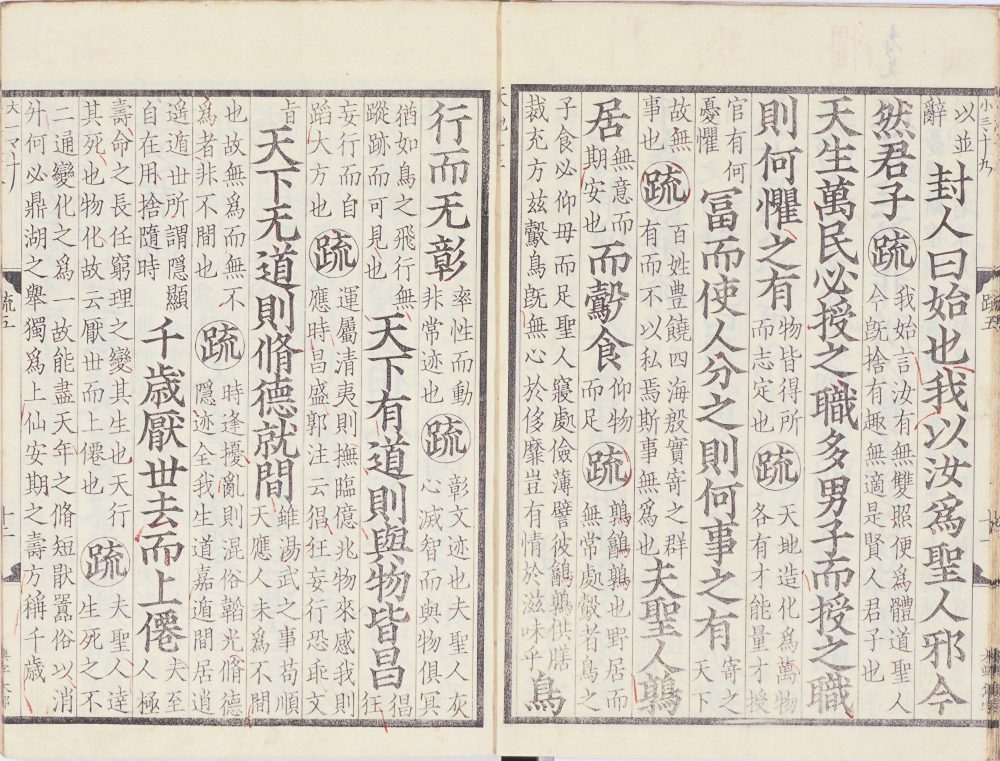 小三十九
以並
辭
封人曰始也我以汝爲聖人邪今
然君子
疏
我始言汝有無雙照便爲體道聖人
今旣捨有趣無適是賢人君子也
天生萬民必授之職多男子而授之職
則何懼之有
物皆得所
而志定也
疏
天地造化爲萬物
各有才能量才授
官有何
憂懼
冨而使人分之則何事之有
寄之
天下
故無
事也
疏
百姓豊饒四海殷實寄之群
有而不以私焉斯事無爲也
夫聖人鶉
居
無意而
期安也
而鷇食
仰物
而足
疏
鶉鷂鶉也野居而
無常處鷇者鳥之
子食必仰母而足聖人寢處儉薄譬彼鷂鶉供膳
裁充方兹鷇鳥旣無心於侈靡豈有情於滋味乎
鳥
行而无彰
率性而動
非常迹也
疏
彰文迹也夫聖人灰
心滅智而與物俱冥
猶如鳥之飛行無
蹤跡而可見也
天下有道則與物皆昌
猖
狂
妄行而自
蹈大方也
疏
運屬清夷則撫臨億兆物來感我則
應時昌盛郭注云猖狂妄行恐乖文
旨
天下无道則脩德就間
雖湯武之事苟順
天應人未爲不間
也故無爲而無不
爲者非不間也
疏
時逢擾亂則混俗韜光脩德
隱迹全我生道嘉遁間居逍
遥遁世所謂隱顯
自在用捨隨時
千歳厭世去而上僊
夫至
人極
壽命之長任窮理之變其生也天行
其死也物化故云厭世而上僊也
疏
夫聖人達
生死之不
二通變化之爲一故能盡天年之脩短猒囂俗以消
升何必鼎湖之舉獨爲上仙安期之壽方稱千歳
疏五